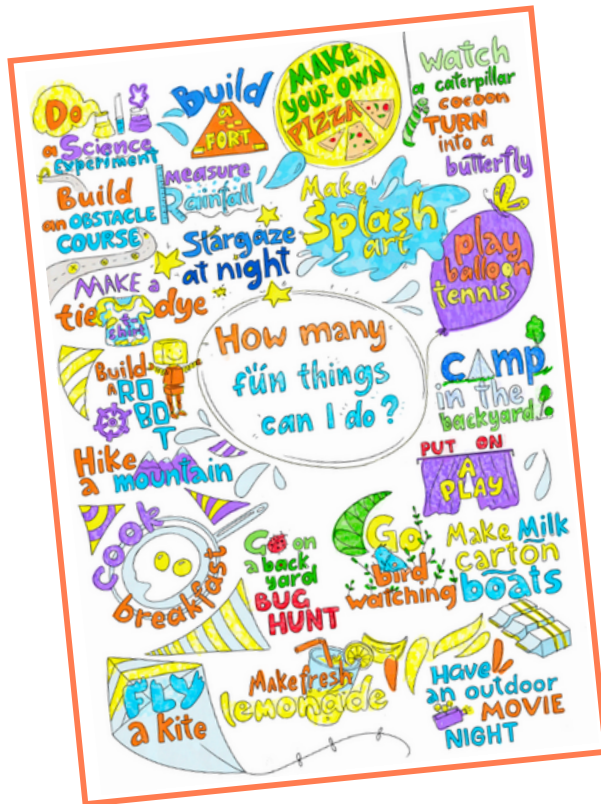 Do
a Science
Experiment
Build
a
FORT
MAKE
YOUR OWN
PIZZA
watch
a caterpillar
cocoon
TURN
into a
butterfly
Build
an OBSTACLE
COURSE
measure
Rainfall
Make
Splash
art
Stargaze
at night
play
balloon
tennis
MAKE a
tie dye
t-shirt
How many
fun things
can I do?
Build
A RO
BO
T
camp
in the
backyard
Hike
a mountain
PUT ON
A
PLAY
cook
breakfast
Go on
a back
yard
BUG
HUNT
Go
bird
watching
Make Milk
carton
boats
FLY
a kite
Make fresh
lemonade
Have
an outdoor
MOVIE
NIGHT